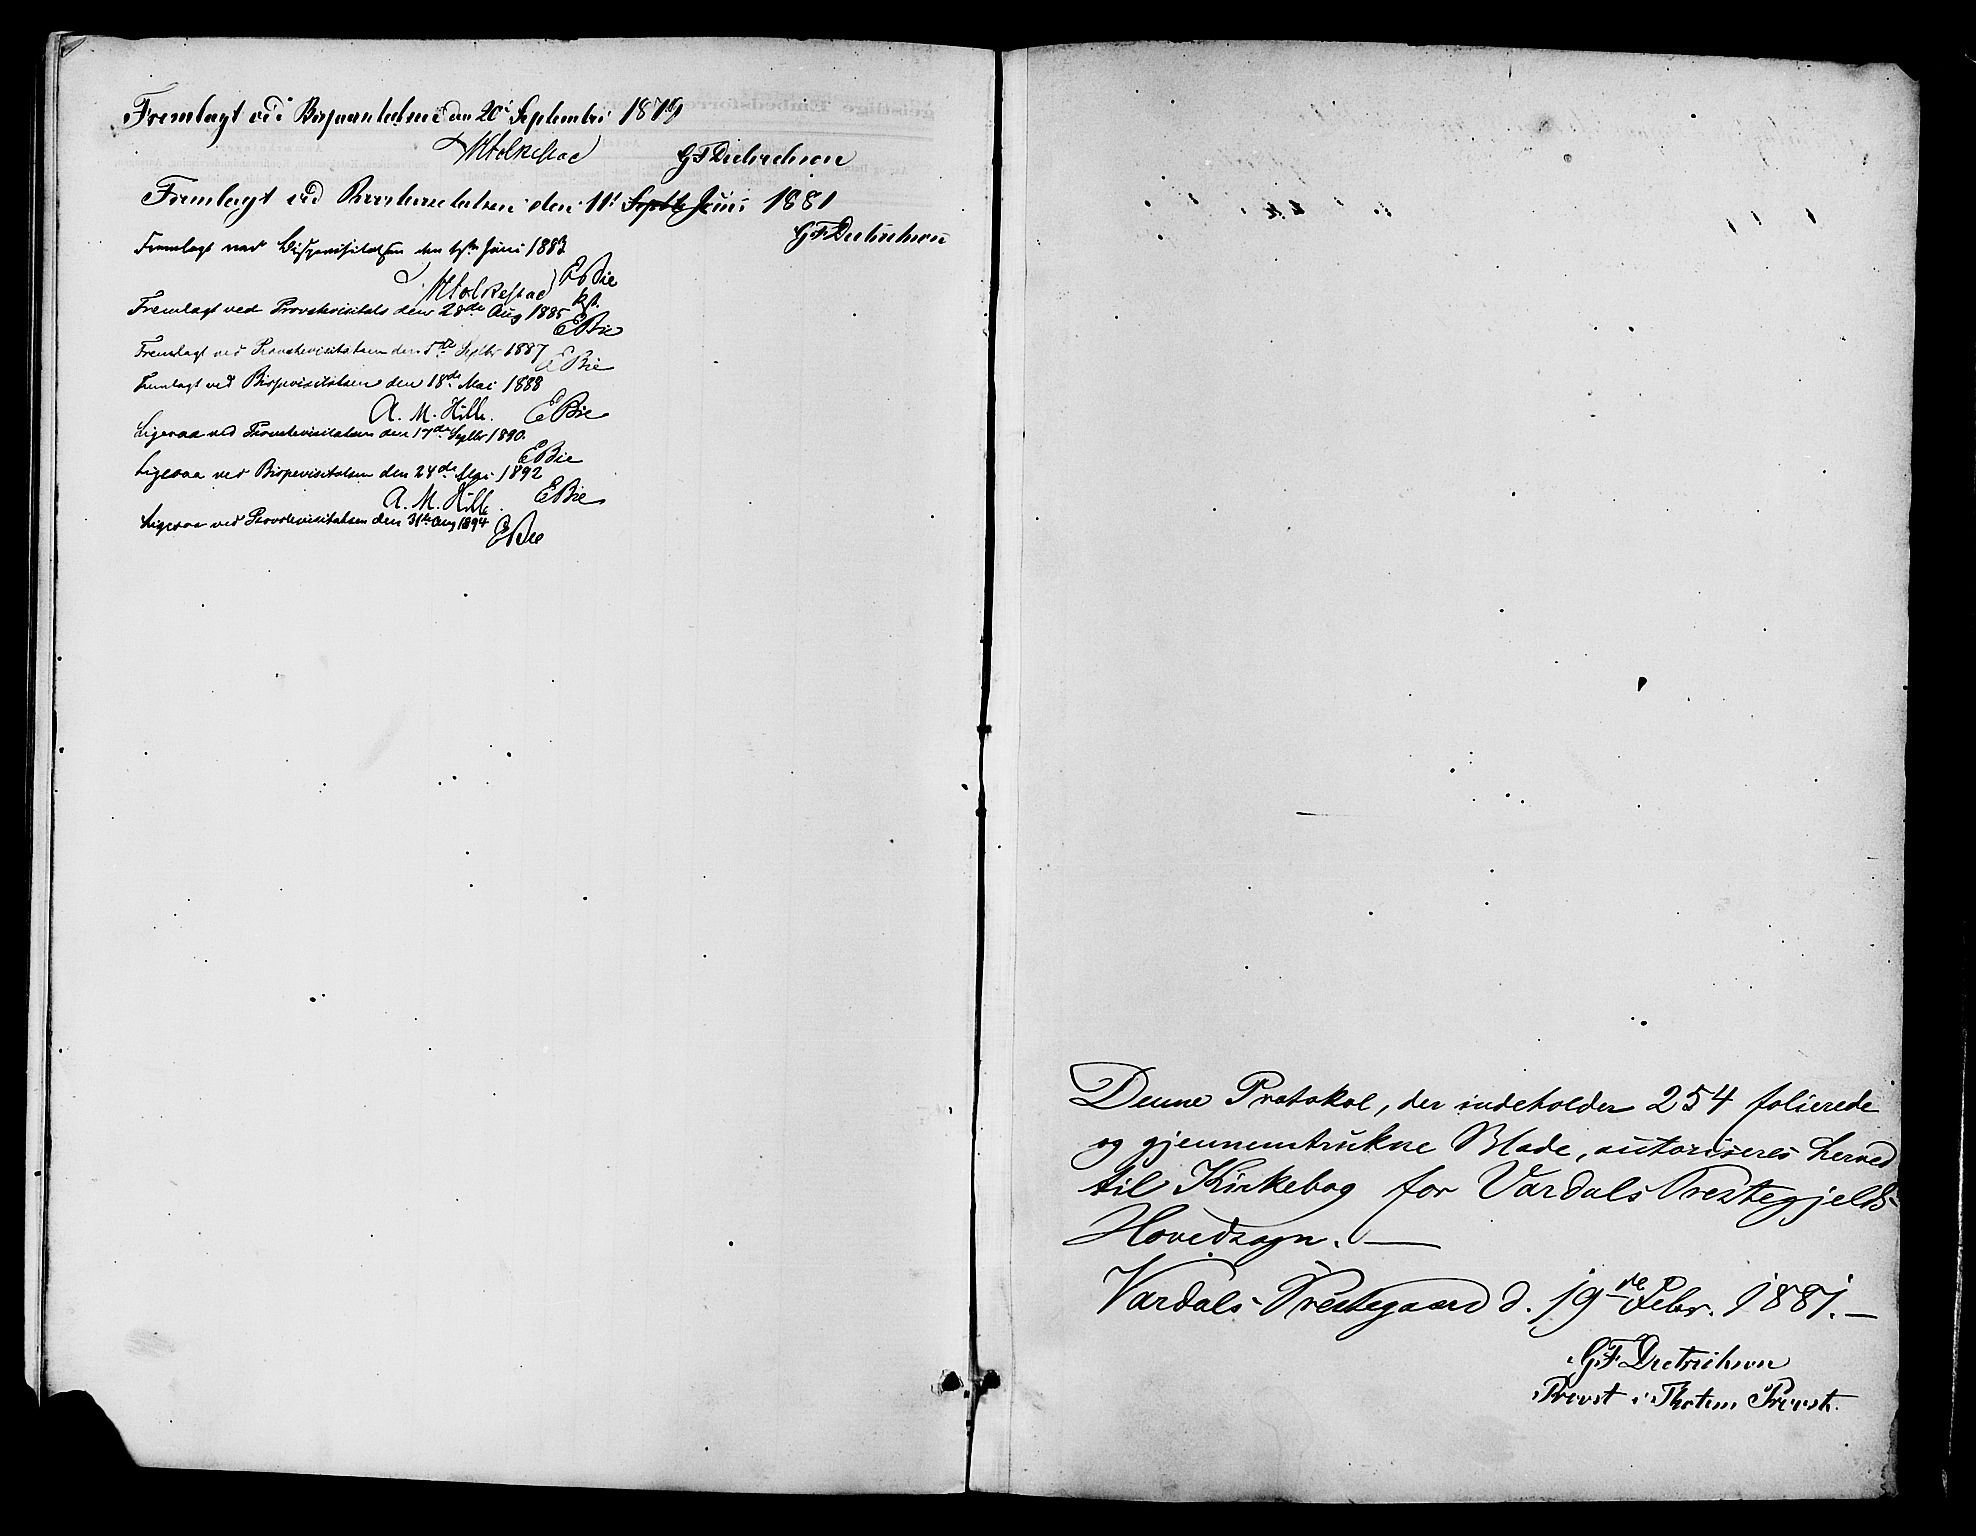 Fremlagt ved Bispevisitatsen den 20de September 1879
GFDietrichson
Fremlagt ved Provstevisitatsen den 11te Septb Juni 1881
GFDietrichson
Fremlagt ved Bispevisitatsen den Juni 1883
EBie
kst.
Fremlagt ved Provstevisitats den 28de Aug 1885
EBie
Fremlagt ved Provstevisitatsen den 5te Septbr 1887
EBie
Fremlagt ved Bispevisitatsen den 18de Mai 1888
A. M. Hille. EBie
Ligesaa ved Provstevisitatsen den 17de Septbr 1890.
EBie
Ligesaa ved Bispevisitatsen den 24de Mai 1892
A. M. Hille. EBie
Ligesaa ved Provstevisitatsen den 31te Aug 1894
EBie
Denne Protokol, der indeholder 254 folierede
og gjennemtrukne Blade, autoriseres herved
til Kirkebog for Vardals Prestegjelds-
Hovedsogn. —
Vardals Prestegaard d. 19de Febr. 1881. —
GFDietrichson
Provst i Thotens Provsti.